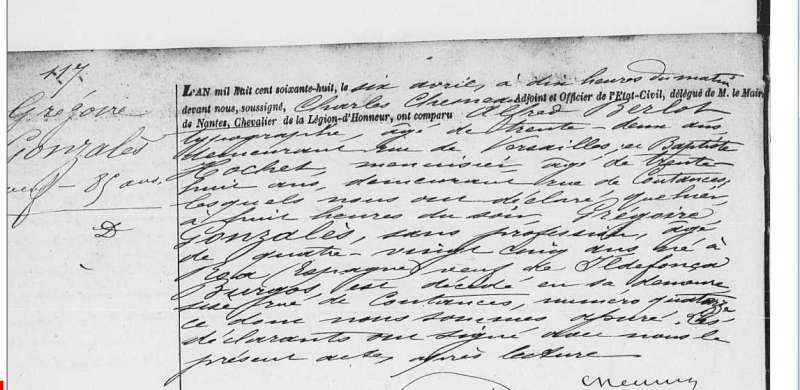 117
Grégoire
Gonzalès
veuf - 85 ans
D
L'AN mil huit cent soixante-huit, le six avril, à dix heures du matin
devant nous, soussigné, Charles Adjoint et Officier de l'Etat-Civil, délégué de M. le Maire
de Nantes, Chevalier de la Légion-d'Honneur, ont comparu Alfred Berlot
typographe âgé de trente-deux ans,
demeurant rue de Versailles, et Baptiste
Lochet, menuisier, âgé de trente-
huit ans, demeurant rue de Coutances,
lesquels nous ont déclaré que hier,
à huit heures du soir, Grégoire
Gonzalès, sans profession, âgé
de quatre-vingt cinq ans né à
Roa (Espagne) veuf de Ildefonça
Burgos, est décédé en sa demeure
sise rue de Coutances, numéro quatorze
ce dont nous sommes assuré. Les
déclarants ont signé avec nous le
présent acte, après lecture